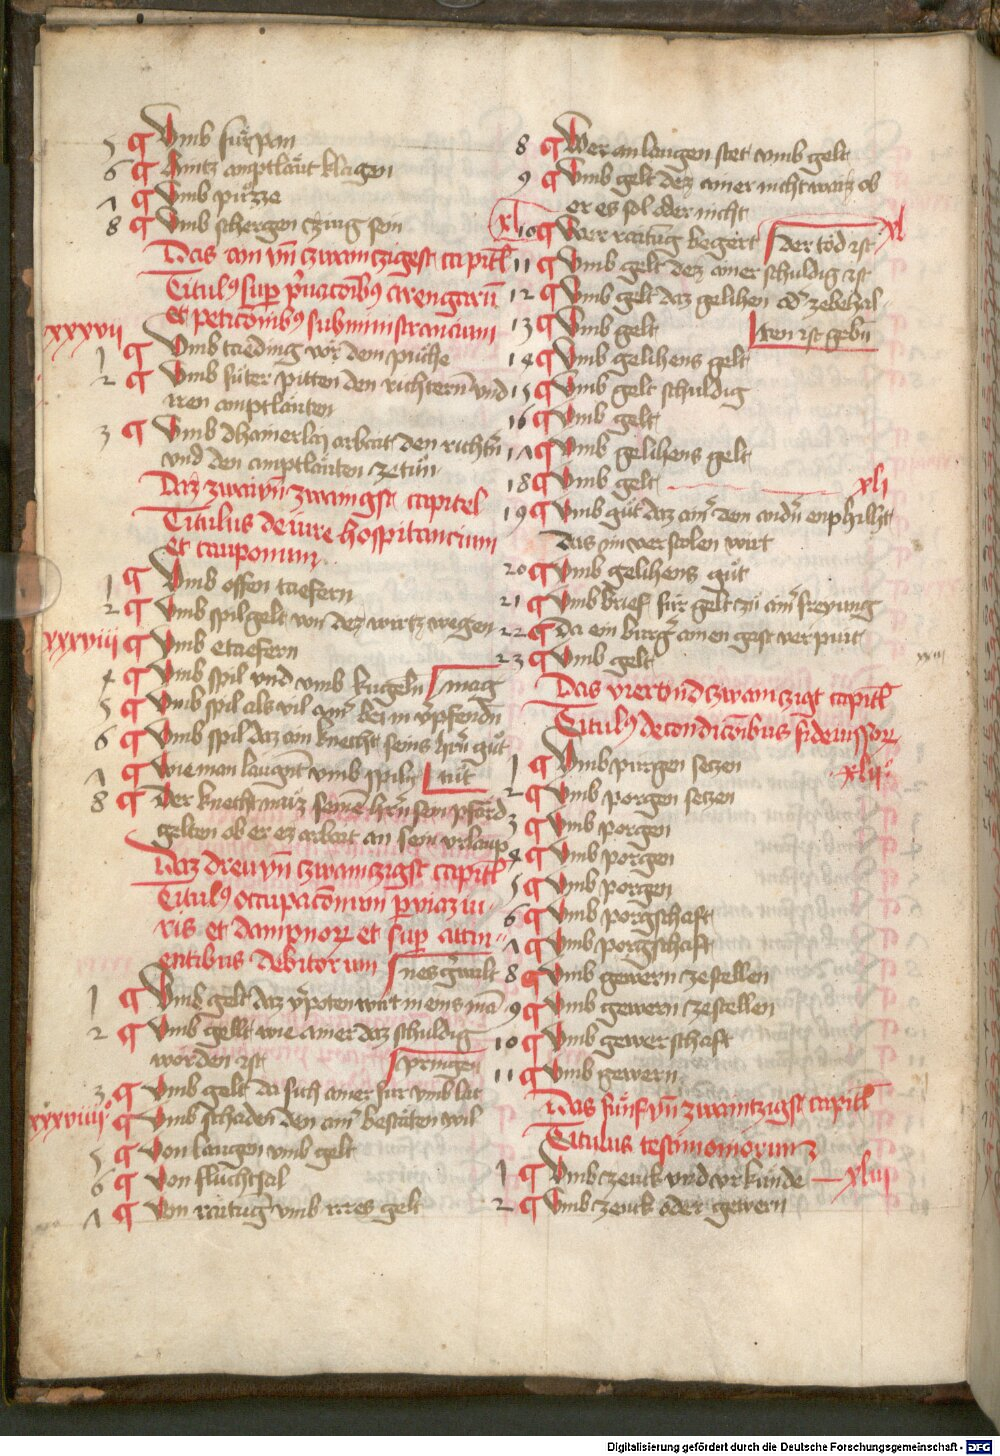 5 ¶ Vmb fuͤrpan
6 ¶ Aintz amptlaut klagen
7 ¶ Vmb puͤzze
8 ¶ Vmb schergen
Das ain vn̄ czwainczigest capitl̄
Titulꝰ sup
et peticōnibꝰ subministrancium
xxxvii
1 ¶ Vmb taeding vor dem puͤche
2 ¶ Vmb fuͤter pitten den richtern vnd
iren amptlaͤuten
3 ¶ Vmb dhainerlaj arbait den richtn̄
vnd den amptlaͤuten zetuͦn
Daz zwai vn̄ zwaingst capitel
Titulus de iure hospitancium
et cauponum
1 ¶ Vmb offen taefern
2 ¶ Vmb spilgelt von dez wirtz wegen
xxxviii ¶ Vmb etaefern
4 ¶ Vmb spil vnd vmb kugeln mag
5 ¶ Vmb spil als vil ainͬ bei im vͬpfendn̄
6 ¶ Vmb spil daz ain knecht seins hrn̄ guͦt
7 ¶ Wie man laugnt vmb spiln tuͦt
8 ¶ Der knecht muͦz seinē hrn̄ sein pfard
gelten ob er ez arbait an sein vrlaup
Daz dreu vn̄ czwainczigst capitl̄
Titulꝰ occupaconum
ris et dampnorꝝ et sup attin
entibus debitorum nes gewalt
1 ¶ Vmb gelt daz vͬpoten wirt in eins mā
2 ¶ Vmb gellt wie ainer daz schuldig
worden ist pringen
3 ¶ Vmb gelt da sich ainer fur vmb lat
xxxviiii ¶ Vmb schaden den ainͬ bestaͤten wil
5 ¶ Von laugen vmb gelt
6 ¶ Von fluchtsal
7 ¶ Von raitūg vmb irres gelt
8 ¶ Wer an laugen stet vmb gelt
9 ¶ Vmb gelt dez ainer nicht waiz ob
er es sol oder nicht
xl 10 ¶ Wer raitūg begert der tod ist xl
11 ¶ Vmb gelt dez ainer schuldig ist
12 ¶ Vmb gelt daz gelihen odͬ zebehal
13 ¶ Vmb gelt ten ist gebn̄
14 ¶ Vmb gelihens gelt
15 ¶ Vmb gelt schuldig
16 ¶ Vmb gelt
17 ¶ Vmb gelihens gelt
18 ¶ Vmb gelt xli
19 ¶ Vmb guͦt daz ainͬ dem andn̄ enphilht
das im verstolen wirt
20 ¶ Vmb gelihens guͦt
21 ¶ Vmb brief fur gelt zu ainͬ freyung
22 ¶ Da ein burgͬ ainen gast verpiut
23 ¶ Vmb gelt
Das vierundczwainczigt capitl̄
Titulꝰ de condicōibus fideiussorꝝ
1 ¶ Vmb purgen seczen xlii
2 ¶ Vmb porgen seczen
3 ¶ Vmb porgen
4 ¶ Vmb porgen
5 ¶ Vmb porgen
6 ¶ Vmb porgschaft
7 ¶ Vmb porgschaft
8 ¶ Vmb gewern zestellen
9 ¶ Vmb gewern zestellen
10 ¶ Vmb gewerschaft
11 ¶ Vmb gewern
Das fuͤnf vn̄ zwaintzigst capitl̄
Titulus testimoniorum
1 ¶ Vmb czeuck vnd vrkunde xliii
2 ¶ Vmb czeuck oder gewern
Digitalisierung gefördert durch die Deutsche Forschungsgemeinschaft - DFG